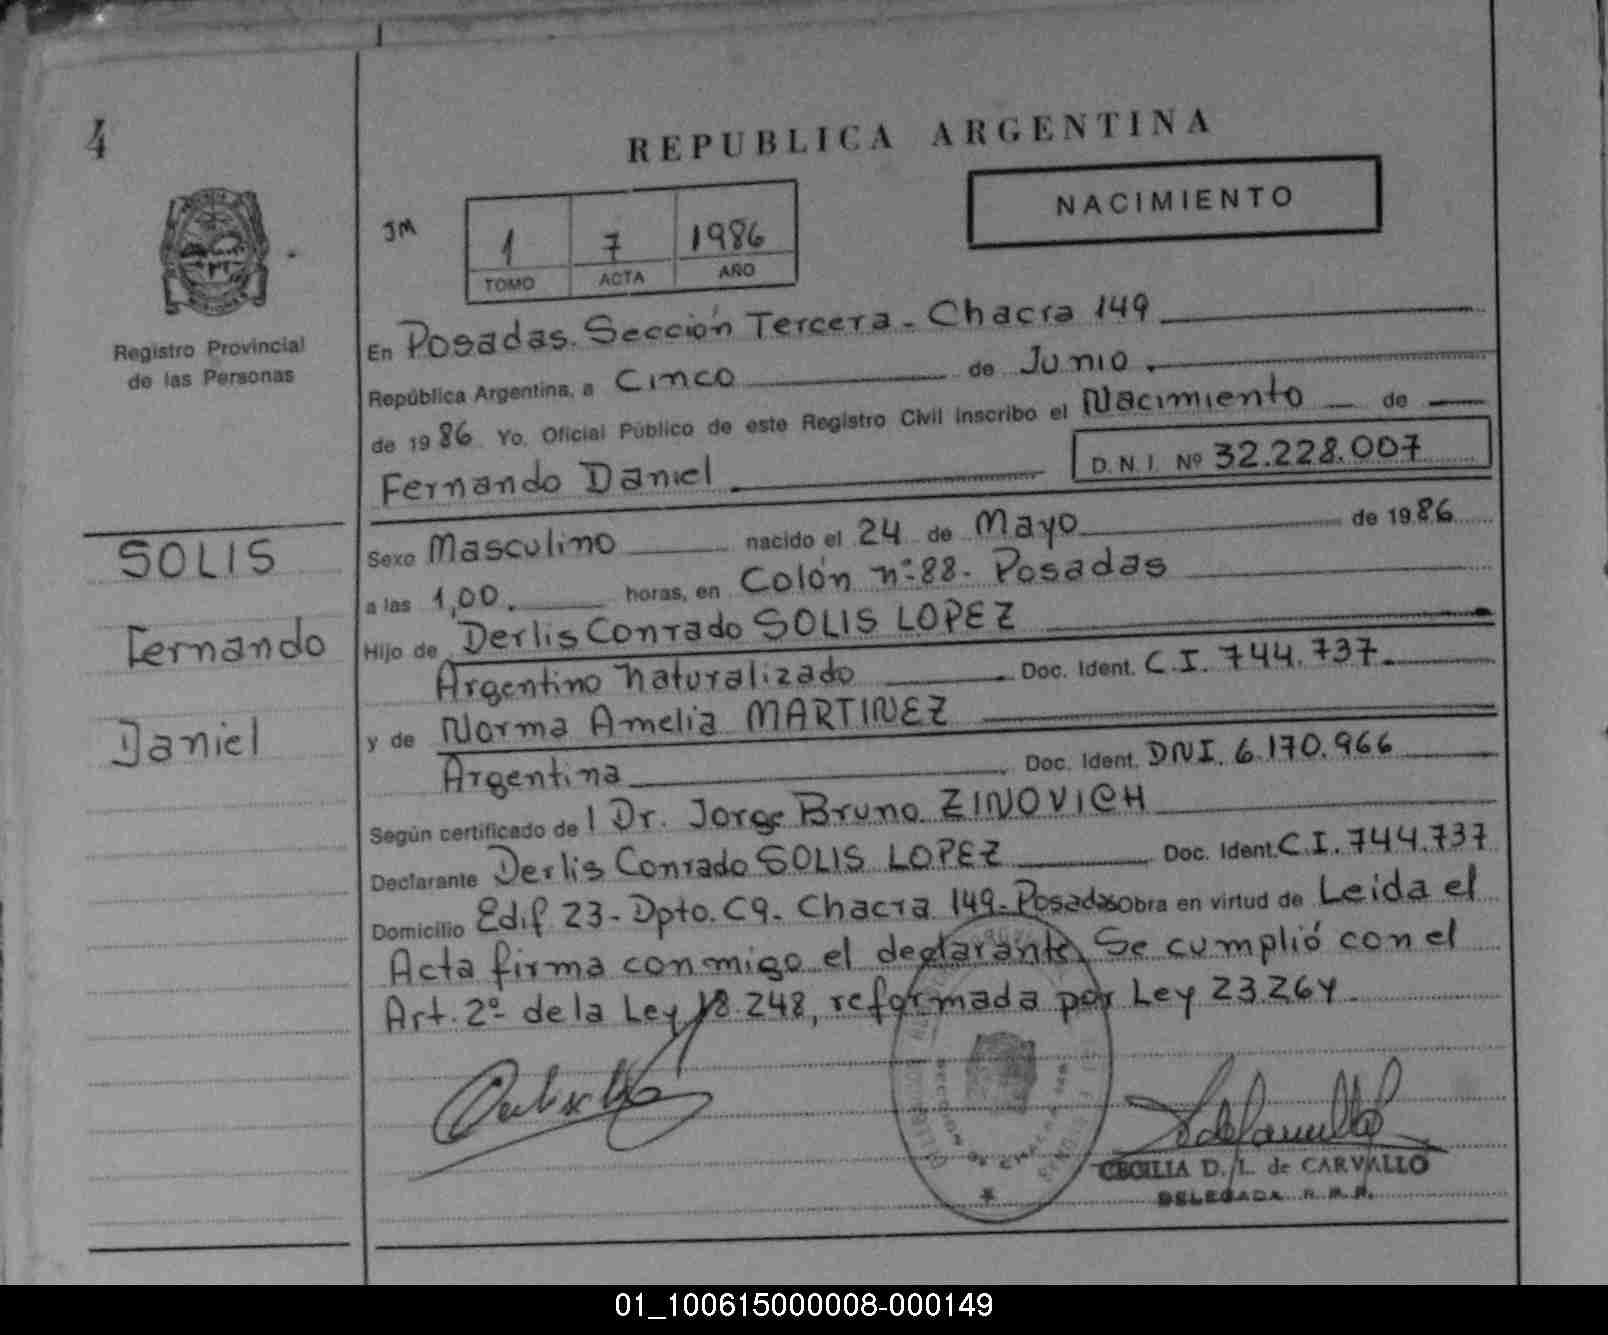 4
REPUBLICA ARGENTINA
NACIMIENTO
JM
1 7 1986
TOMO ACTA AÑO
Registro Provincial
de las Personas
En Posadas. Sección Tercera - Chacra 149
República Argentina, a Cinco de Junio
de 1986 Yo, Oficial Público de este Registro Civil inscribo el Nacimiento de
Fernando Daniel D.N.I. Nº 32.228.007
SOLIS
Fernando
Daniel
Sexo Masculino nacido el 24 de Mayo de 1986
a las 1,00. horas, en Colón nº 88 - Posadas
Hijo de Derlis Conrado SOLIS LOPEZ
Argentino Naturalizado Doc. Ident. C.I. 744.737
y de Norma Amelia MARTINEZ
Argentina Doc. Ident. DNI. 6.170.966
Según certificado de l Dr. Jorge Bruno ZINOVICH
Declarante Derlis Conrado SOLIS LOPEZ Doc. Ident. C.I. 744.737
Domicilio Edif. 23 - Dpto. C9 - Chacra 149 - Posadas obra en virtud de Leida el
Acta firma conmigo el declarante. Se cumplió con el
Art. 2º de la Ley 18.248, reformada por Ley 23264
CECILIA D. L. de CARVALLO
DELEGADA R.P.P.
01_100615000008-000149